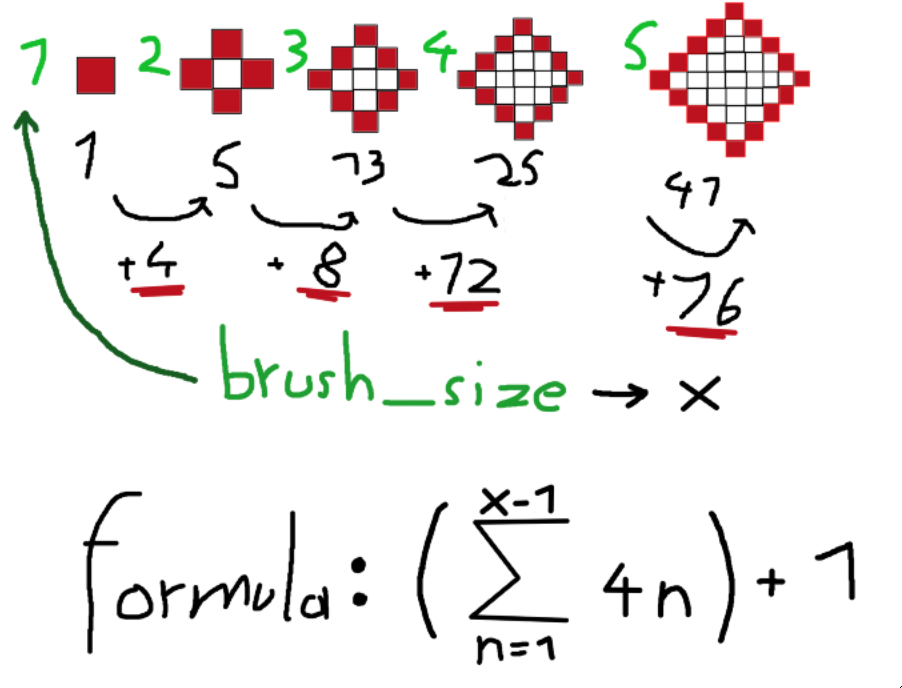 1 2 3 4 5
1 5 13 25 41
+4 +8 +12 +16
brush_size → x
formula: (∑_{n=1}^{x-1} 4n) + 1